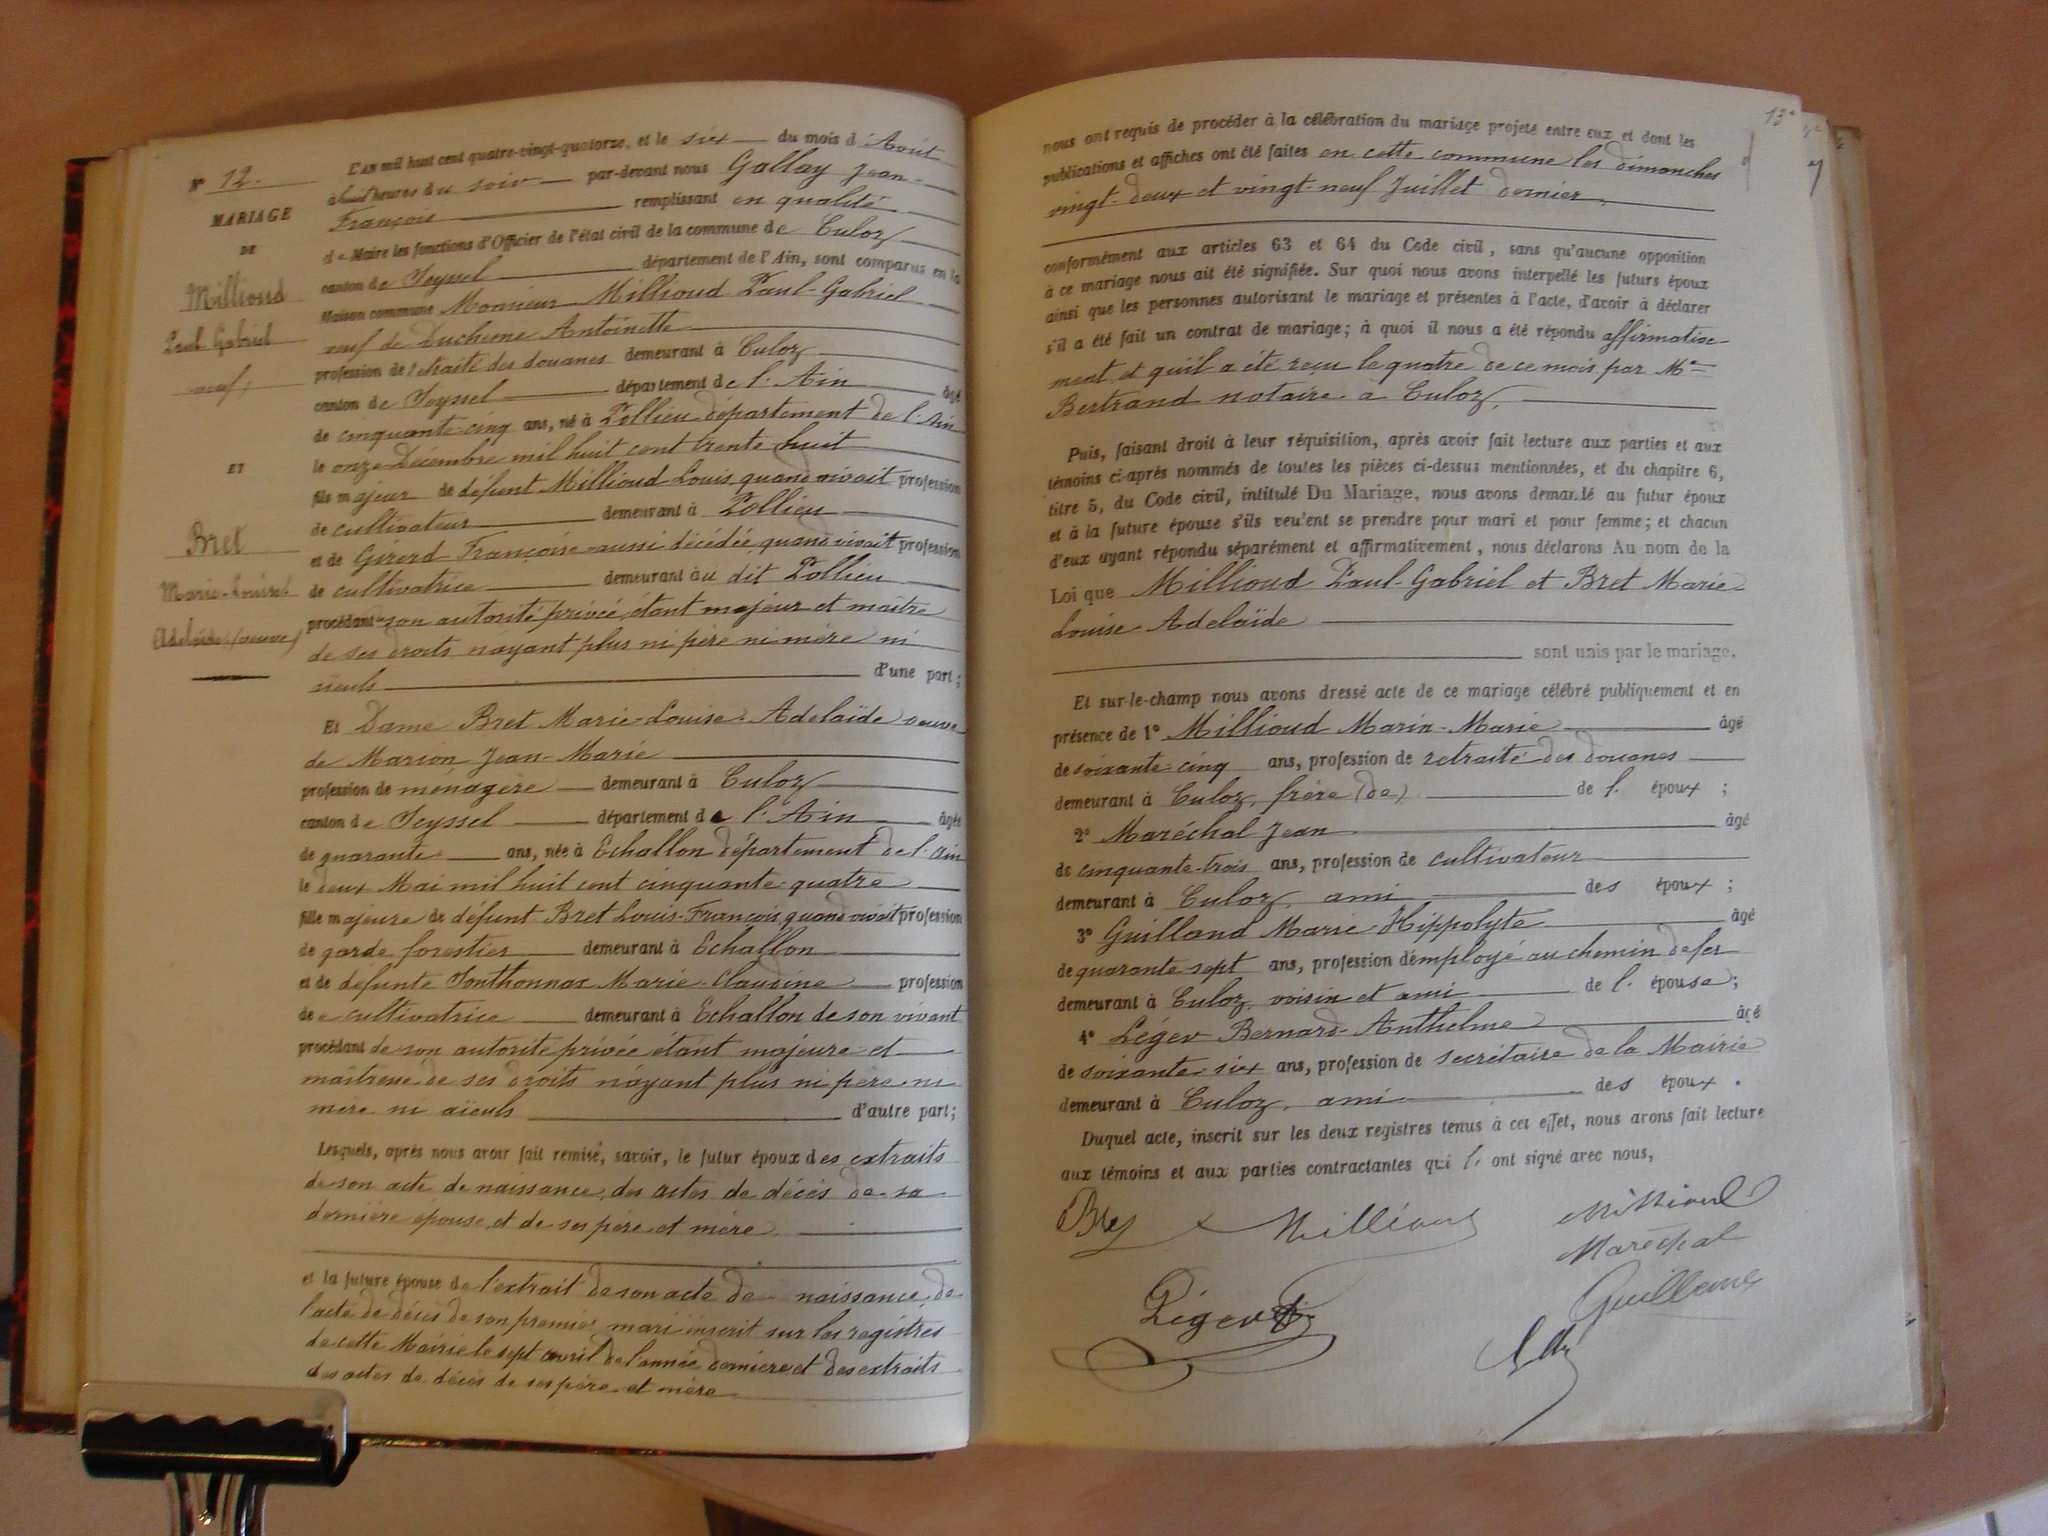 N° 12.
MARIAGE
DE
Millioud
Paul Gabriel
veuf,
ET
Bret
Marie-Louise
Adelaïde (veuve)
L'AN mil huit cent quatre-vingt-quatorze, et le six du mois d'Août
à huit heures du soir par-devant nous Gallay Jean-
François remplissant en qualité
de Maire les fonctions d'Officier de l'état civil de la commune de Culoz
canton de Seyssel département de l'Ain, sont comparus en la
Maison commune Monsieur Millioud Paul-Gabriel
veuf de Duchene Antoinette
profession de retraité des douanes demeurant à Culoz
canton de Seyssel département de l'Ain âgé
de cinquante-cinq ans, né à Pollieu département de l'Ain
le onze Décembre mil huit cent trente-huit
fils majeur de défunt Millioud Louis, quand vivait profession
de cultivateur demeurant à Pollieu
et de Girord Françoise aussi décédée, quand vivait profession
de cultivatrice demeurant au dit Pollieu
procédant de son autorité privée, étant majeur et maître
de ses droits n'ayant plus ni père ni mère ni
aïeuls d'une part;
Et Dame Bret Marie-Louise-Adelaïde veuve
de Marion Jean-Marie
profession de ménagère demeurant à Culoz
canton de Seyssel département de l'Ain âgée
de quarante ans, née à Echallon département de l'Ain
le deux Mai mil huit cent cinquante-quatre
fille majeure de défunt Bret Louis-François, quand vivait profession
de garde forestier demeurant à Echallon
et de défunte Jonthonnax Marie-Claudine profession
de cultivatrice demeurant à Echallon de son vivant
procédant de son autorité privée étant majeure et
maîtresse de ses droits n'ayant plus ni père ni
mère ni aïeuls d'autre part;
Lesquels, après nous avoir fait remise, savoir, le futur époux des extraits
de son acte de naissance, des actes de décès de sa
dernière épouse et de ses père et mère
et la future épouse de l'extrait de son acte de naissance, de
l'acte de décès de son premier mari inscrit sur les registres
de cette Mairie le sept avril de l'année dernière et des extraits
des actes de décès de ses père et mère
13e
nous ont requis de procéder à la célébration du mariage projeté entre eux et dont les
publications et affiches ont été faites en cette commune les dimanches
vingt-deux et vingt-neuf Juillet dernier,
conformément aux articles 63 et 64 du Code civil, sans qu'aucune opposition
à ce mariage nous ait été signifiée. Sur quoi nous avons interpellé les futurs époux
ainsi que les personnes autorisant le mariage et présentes à l'acte, d'avoir à déclarer
s'il a été fait un contrat de mariage; à quoi il nous a été répondu affirmative-
ment et qu'il a été reçu le quatre de ce mois par Me
Bertrand notaire à Culoz,
Puis, faisant droit à leur réquisition, après avoir fait lecture aux parties et aux
témoins ci-après nommés de toutes les pièces ci-dessus mentionnées, et du chapitre 6,
titre 5, du Code civil, intitulé Du Mariage, nous avons demandé au futur époux
et à la future épouse s'ils veulent se prendre pour mari et pour femme; et chacun
d'eux ayant répondu séparément et affirmativement, nous déclarons Au nom de la
Loi que Millioud Paul-Gabriel et Bret Marie
Louise-Adelaïde
sont unis par le mariage.
Et sur-le-champ nous avons dressé acte de ce mariage célébré publiquement et en
présence de 1° Millioud Marin-Marie âgé
de soixante-cinq ans, profession de retraité des douanes
demeurant à Culoz, frère (de) de l'époux;
2° Maréchal Jean âgé
de cinquante-trois ans, profession de cultivateur
demeurant à Culoz, ami des époux;
3° Guilland Marie-Hippolyte âgé
de quarante-sept ans, profession d'employé au chemin de fer
demeurant à Culoz, voisin et ami de l'épouse;
4° Léger Bernard-Anthelme âgé
de soixante-six ans, profession de secrétaire de la Mairie
demeurant à Culoz, ami des époux.
Duquel acte, inscrit sur les deux registres tenus à cet effet, nous avons fait lecture
aux témoins et aux parties contractantes qui l' ont signé avec nous,
Millioud Millioud
Maréchal
Léger Guilland